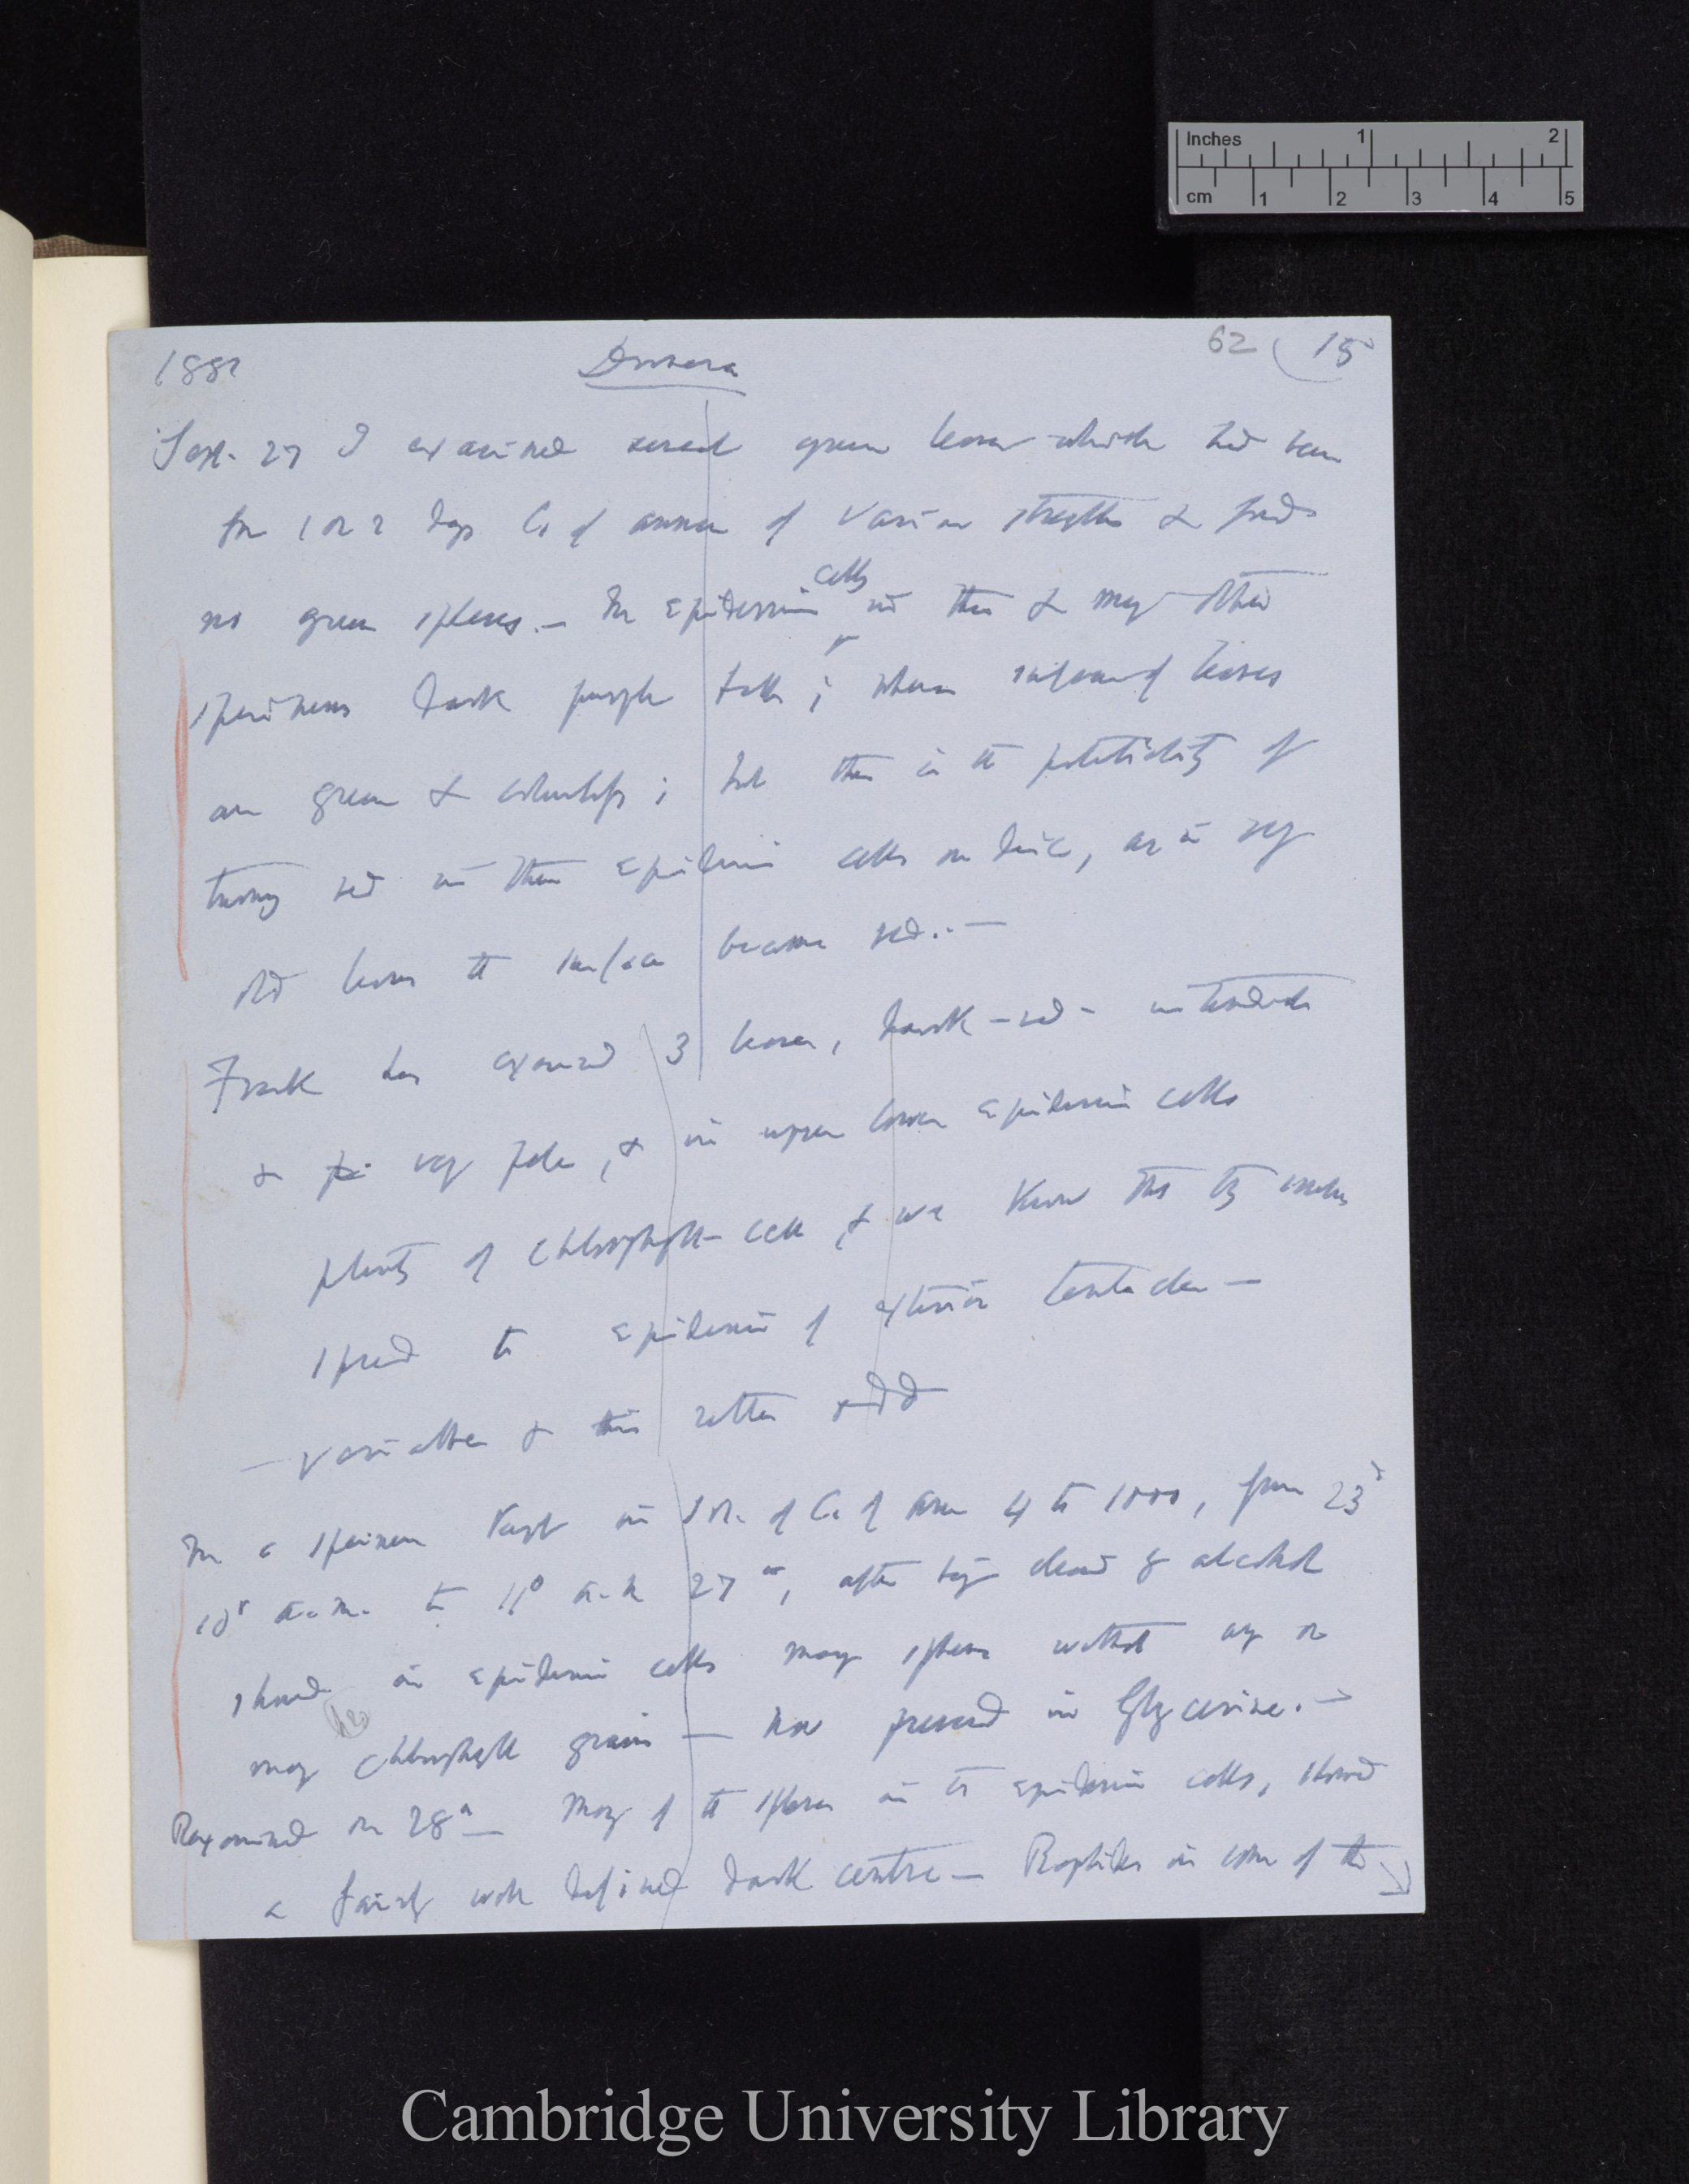 Inches 1 2
cm 1 2 3 4 5
62 (15
188
Drosera
Sept. 27 I examined several green leaves which had been
for 1 or 2 days C. of ammon of various strengths & find
no green spheres. — In epidermic cells in this & many other
specimens dark purple ; when surface of leaves
are green & ; but there is the potentiality of
turning red in these epidermic cells on disc, as in very
old leaves the surface become red. —
Frank has examined 3 leaves, dark-red - tentacles
& very pale, & in upper lower epidermic cells
plenty of chlorophyll- cells, & we know this by
spread to epidermis of exterior tentacles —
— variable & this rather odd
In a specimen kept in Sol. of C. of Amm 4 to 1000, from 23
10 a.m. to 11 a.m 27, after being cleared by alcohol
showed in epidermic cells many spheres without any or
many chlorophyll grains — now preserved in Glycerine. —
Rexamined on 28 — Many of the spheres in the epidermic cells, showed
a fairly well defined dark centre — Raphides in some of the
Cambridge University Library